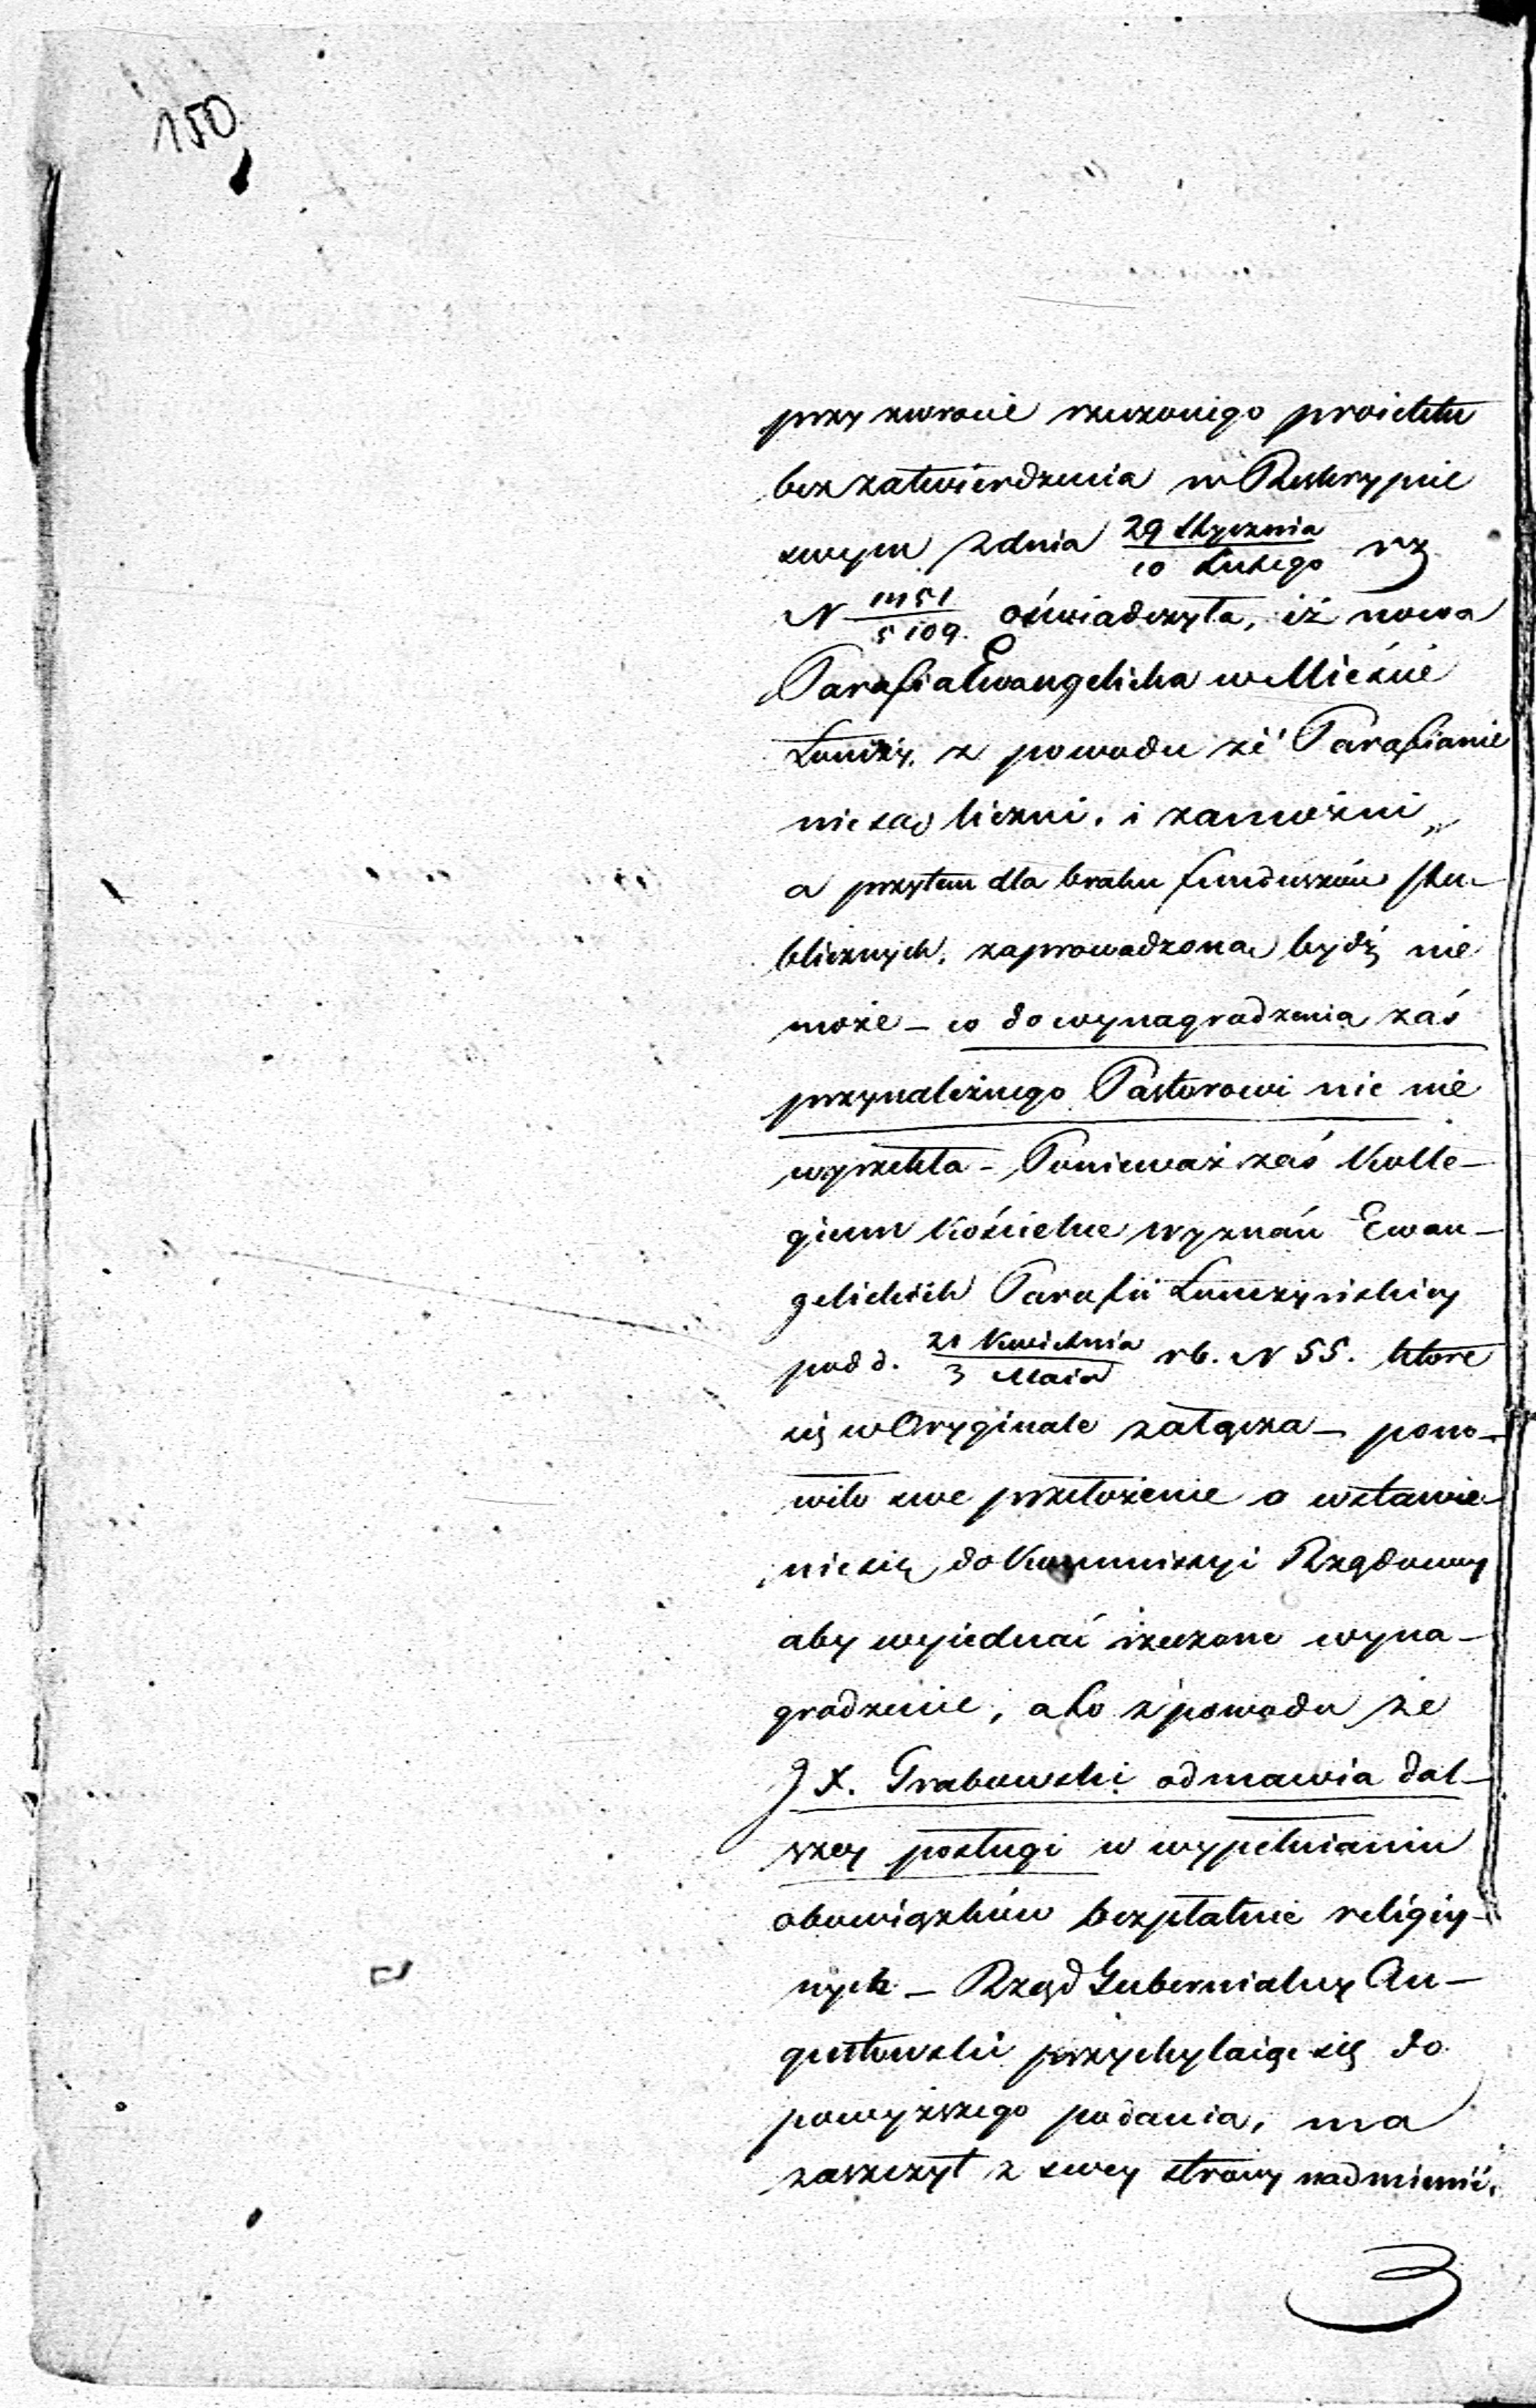 150
przy zwrocie rzeczonego proiektu
bez zatwierdzenia w Reskrypcie
swym z dnia 29 Stycznia / 10 Lutego rz
N 1451 / 5109. oświadczyła, iż nowa
Parafia Ewangelicka w Mieście
Łomży, z powodu że Parafianie
nie są liczni, i zamożni,
a przytem dla braku funduszów pu-
blicznych, zaprowadzoną bydź nie
może – co do wynagrodzenia zaś
przynależnego Pastorowi nic nie
wyrzekła – Ponieważ zaś Kolle-
gium Kościelne wyznań Ewan-
gelickich Parafii Łomżyńskiey
pod d. 21 Kwietnia / 3 Maia rb. N 55. które
się w Oryginale załącza – pono-
wiło swe przełożenie o wstawie-
nie się do Kommissyi Rządowey
aby wyiednać rzeczone wyna-
grodzenie, a to z powodu że
J X. Grabowski odmawia dal-
szey posługi w wypełnianiu
obowiązków bezpłatnie religiy-
nych – Rząd Gubernialny Au-
gustowski przychylaiąc się do
powyższego podania, ma
zaszczyt z swey strony nadmienić,